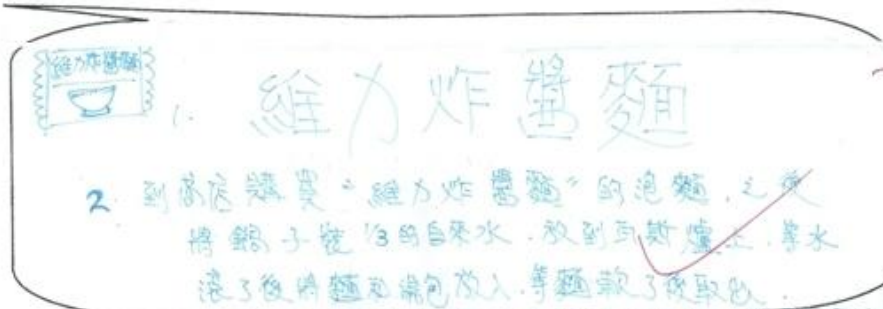 維力炸醬麵
1. 維力炸醬麵
2. 到商店購買“維力炸醬麵”的泡麵,之後
將鍋子裝1/3的自來水,放到瓦斯爐上,等水
滾了後將麵和湯包放入,等麵軟了後取出.